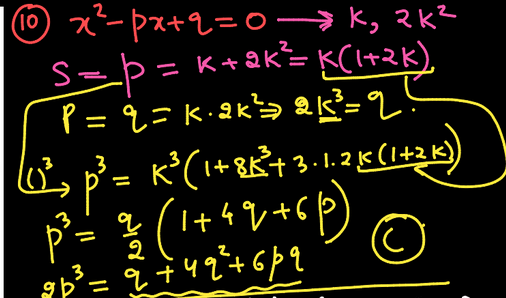 (10) x² - px + q = 0 → k, 2k²
S = p = k + 2k² = k(1+2k)
P = q = k · 2k² ⇒ 2k³ = q.
( )³ → p³ = k³(1 + 8k³ + 3·1·2k(1+2k))
p³ = q/2 (1 + 4q + 6p) (C)
2p³ = q + 4q² + 6pq